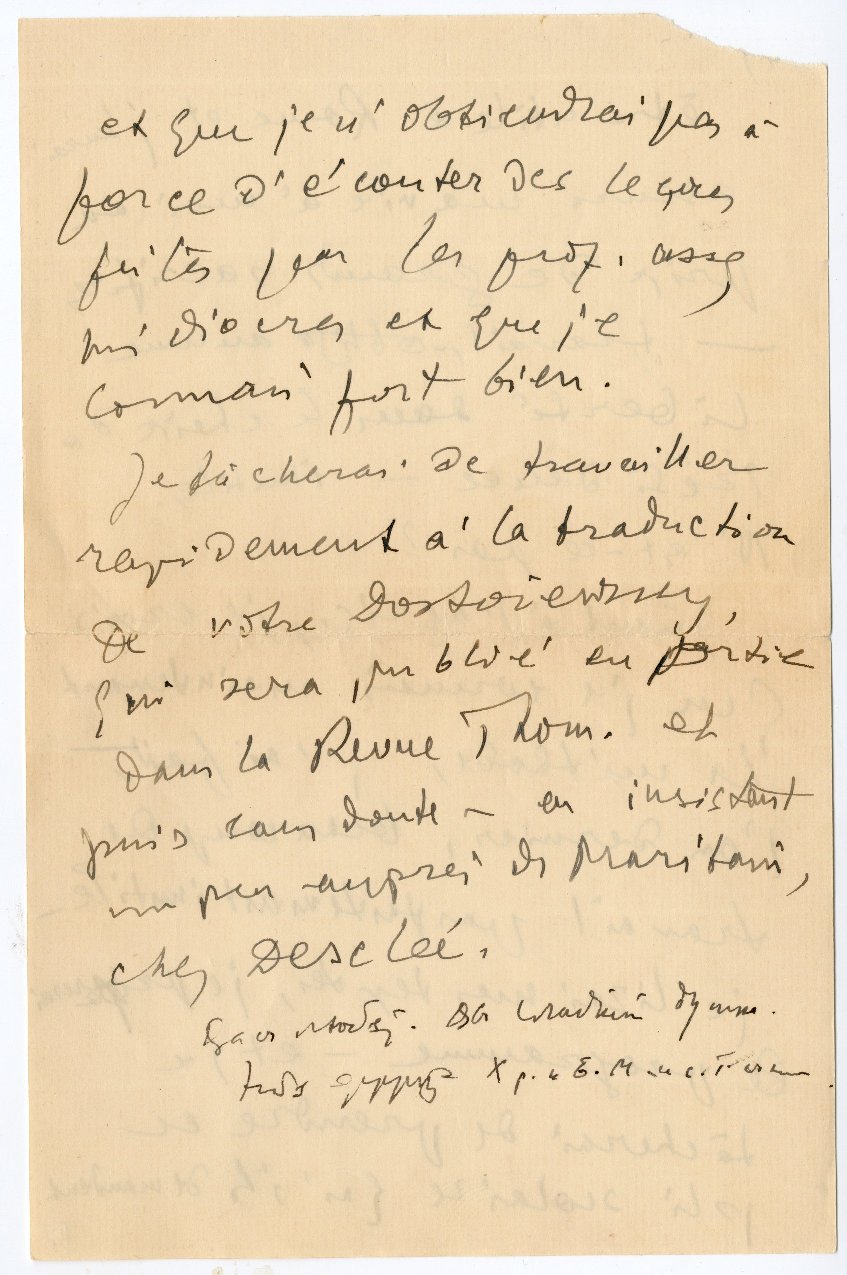 et que je n'obtiendrai pas à
force d'écouter des leçons
faites par les prof. assez
médiocres et que je
connais fort bien.
Je tâcherai de travailler
rapidement à la traduction
de votre Dostoïewsky,
qui sera publié en partie
dans la Revue Thom. et
puis sans doute – en insistant
un peu auprès de Maritain,
chez Desclée.